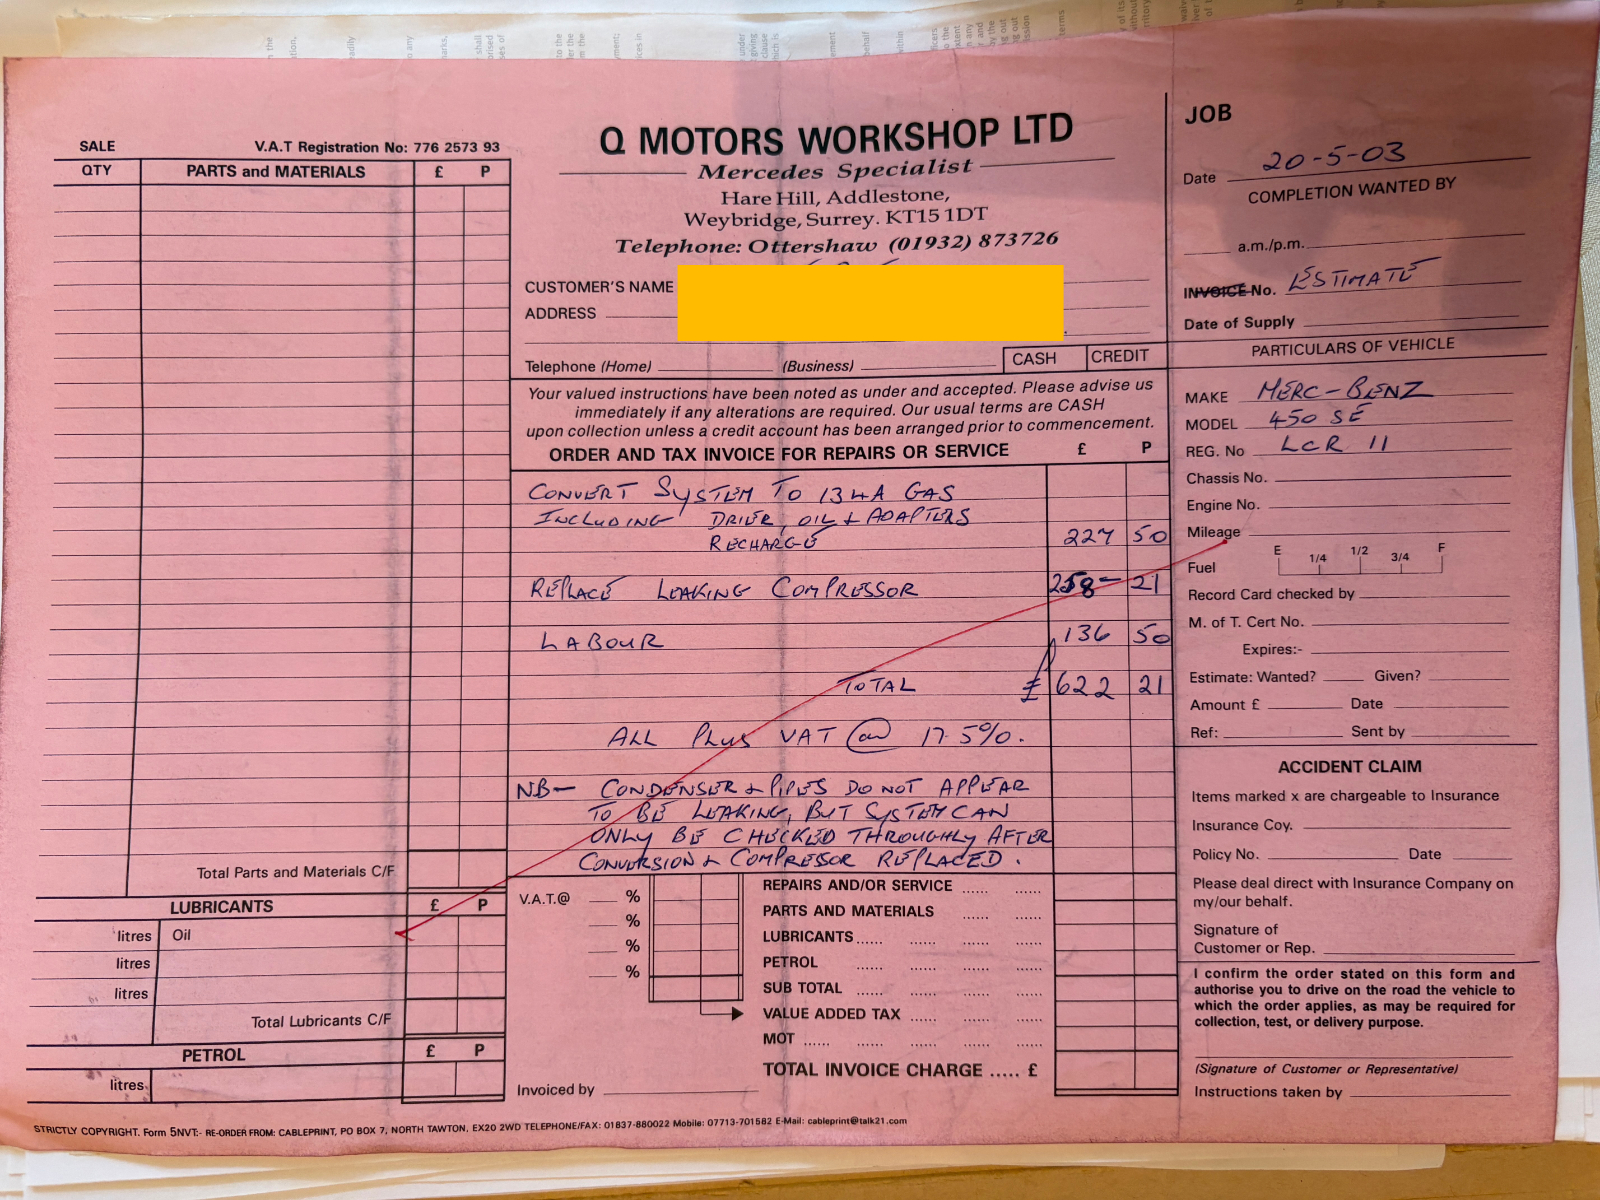 SALE V.A.T Registration No: 776 2573 93
QTY PARTS and MATERIALS £ P
Total Parts and Materials C/F
LUBRICANTS £ P
litres Oil
litres
litres
Total Lubricants C/F
PETROL £ P
litres
Q MOTORS WORKSHOP LTD
Mercedes Specialist
Hare Hill, Addlestone,
Weybridge, Surrey. KT15 1DT
Telephone: Ottershaw (01932) 873726
CUSTOMER'S NAME
ADDRESS
Telephone (Home) (Business) CASH CREDIT
Your valued instructions have been noted as under and accepted. Please advise us
immediately if any alterations are required. Our usual terms are CASH
upon collection unless a credit account has been arranged prior to commencement.
ORDER AND TAX INVOICE FOR REPAIRS OR SERVICE £ P
CONVERT SYSTEM TO 134A GAS
INCLUDING DRIER, OIL & ADAPTERS
RECHARGE 227 50
REPLACE LEAKING COMPRESSOR 258- 21
LABOUR 136 50
TOTAL £ 622 21
ALL PLUS VAT @ 17.5%.
NB- CONDENSER & PIPES DO NOT APPEAR
TO BE LEAKING, BUT SYSTEM CAN
ONLY BE CHECKED THROUGHLY AFTER
CONVERSION & COMPRESSOR REPLACED.
V.A.T.@ %
%
%
%
REPAIRS AND/OR SERVICE ...... ......
PARTS AND MATERIALS ...... ...... ......
LUBRICANTS ...... ...... ...... ......
PETROL ...... ...... ...... ......
SUB TOTAL ...... ...... ...... ......
VALUE ADDED TAX ...... ...... ......
MOT ...... ...... ...... ...... ......
TOTAL INVOICE CHARGE ..... £
Invoiced by
JOB
Date 20-5-03
COMPLETION WANTED BY
a.m./p.m.
INVOICE No. ESTIMATE
Date of Supply
PARTICULARS OF VEHICLE
MAKE MERC-BENZ
MODEL 450 SE
REG. No LCR 11
Chassis No.
Engine No.
Mileage
Fuel E 1/4 1/2 3/4 F
Record Card checked by
M. of T. Cert No.
Expires:-
Estimate: Wanted? Given?
Amount £ Date
Ref: Sent by
ACCIDENT CLAIM
Items marked x are chargeable to Insurance
Insurance Coy.
Policy No. Date
Please deal direct with Insurance Company on
my/our behalf.
Signature of
Customer or Rep.
I confirm the order stated on this form and
authorise you to drive on the road the vehicle to
which the order applies, as may be required for
collection, test, or delivery purpose.
(Signature of Customer or Representative)
Instructions taken by
STRICTLY COPYRIGHT. Form 5NVT:- RE-ORDER FROM: CABLEPRINT, PO BOX 7, NORTH TAWTON, EX20 2WD TELEPHONE/FAX: 01837-880022 Mobile: 07713-701582 E-Mail: cableprint@talk21.com